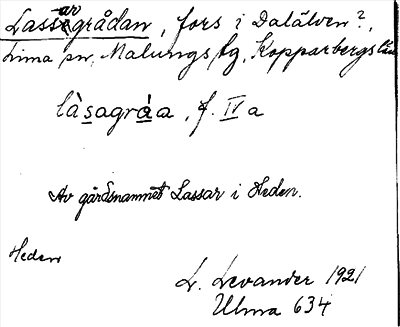 Lassargrådan, fors i Dalälven?,
Lima sn, Malungs tg, Kopparbergs län
làsagrȧ́a, f. IV a
Av gårdsnamnet Lassar i Heden.
Heden
L. Levander 1921
Ulma 634